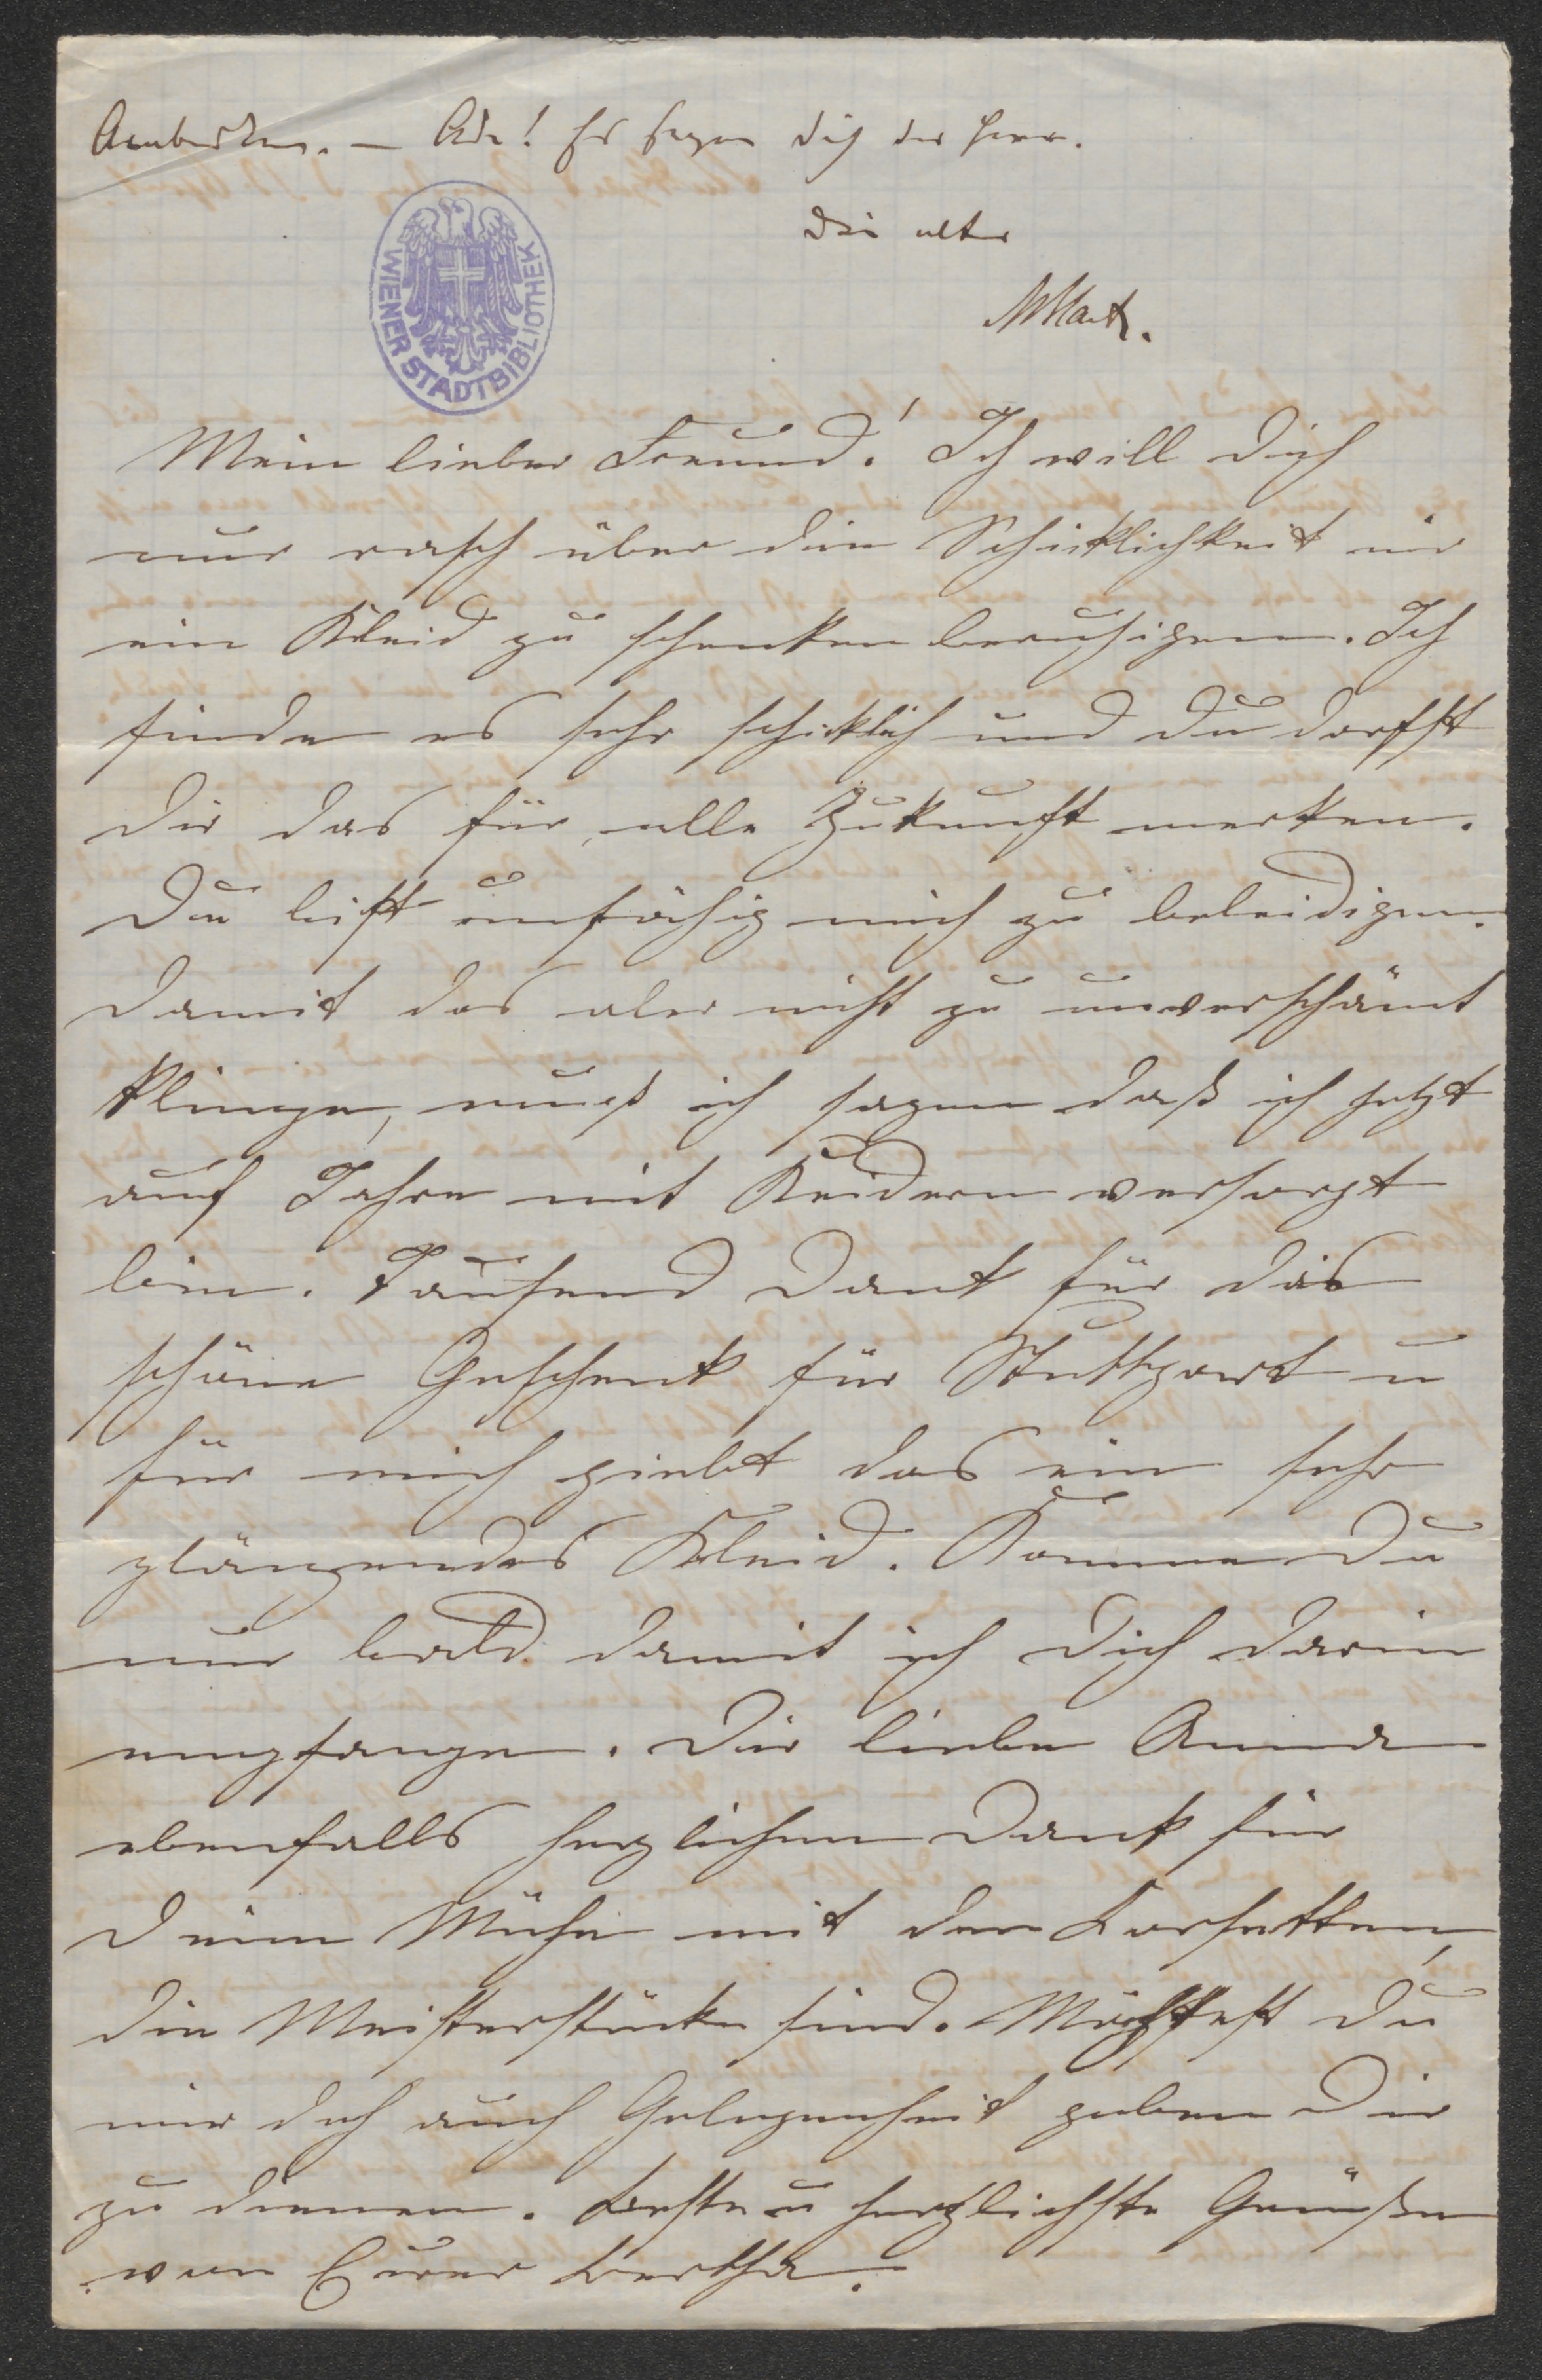 Ade! Es segne Dich der Herr.
Dein alter
WIENER STADTBIBLIOTHEK
Mein lieber Freund! Ich will Dich
nur rasch über die Schicklichkeit mir
ein Kleid zu schenken beruhigen. Ich
finde es sehr schicklich und Du darfst
Dir das für alle Zukunft merken.
Du bist unfähig mich zu beleidigen.
Damit das aber nicht zu unverschämt
klinge, muß ich sagen daß ich jetzt
auf Jahre mit Kleidern versorgt
bin. Tausend Dank für das
schöne Geschenk für Stuttgart u
für mich giebt das ein sehr
glänzendes Kleid. Komme Du
nur bald damit ich Dich darin
empfange. Dir liebe Anna
ebenfalls herzlichen Dank für
Deine Mühe mit den Corsetten,
die Meisterstücke sind. Möchtest Du
mir doch auch Gelegenheit geben Dir
zu dienen. Beste u herzlichste Grüße
von Eurer Bertha.